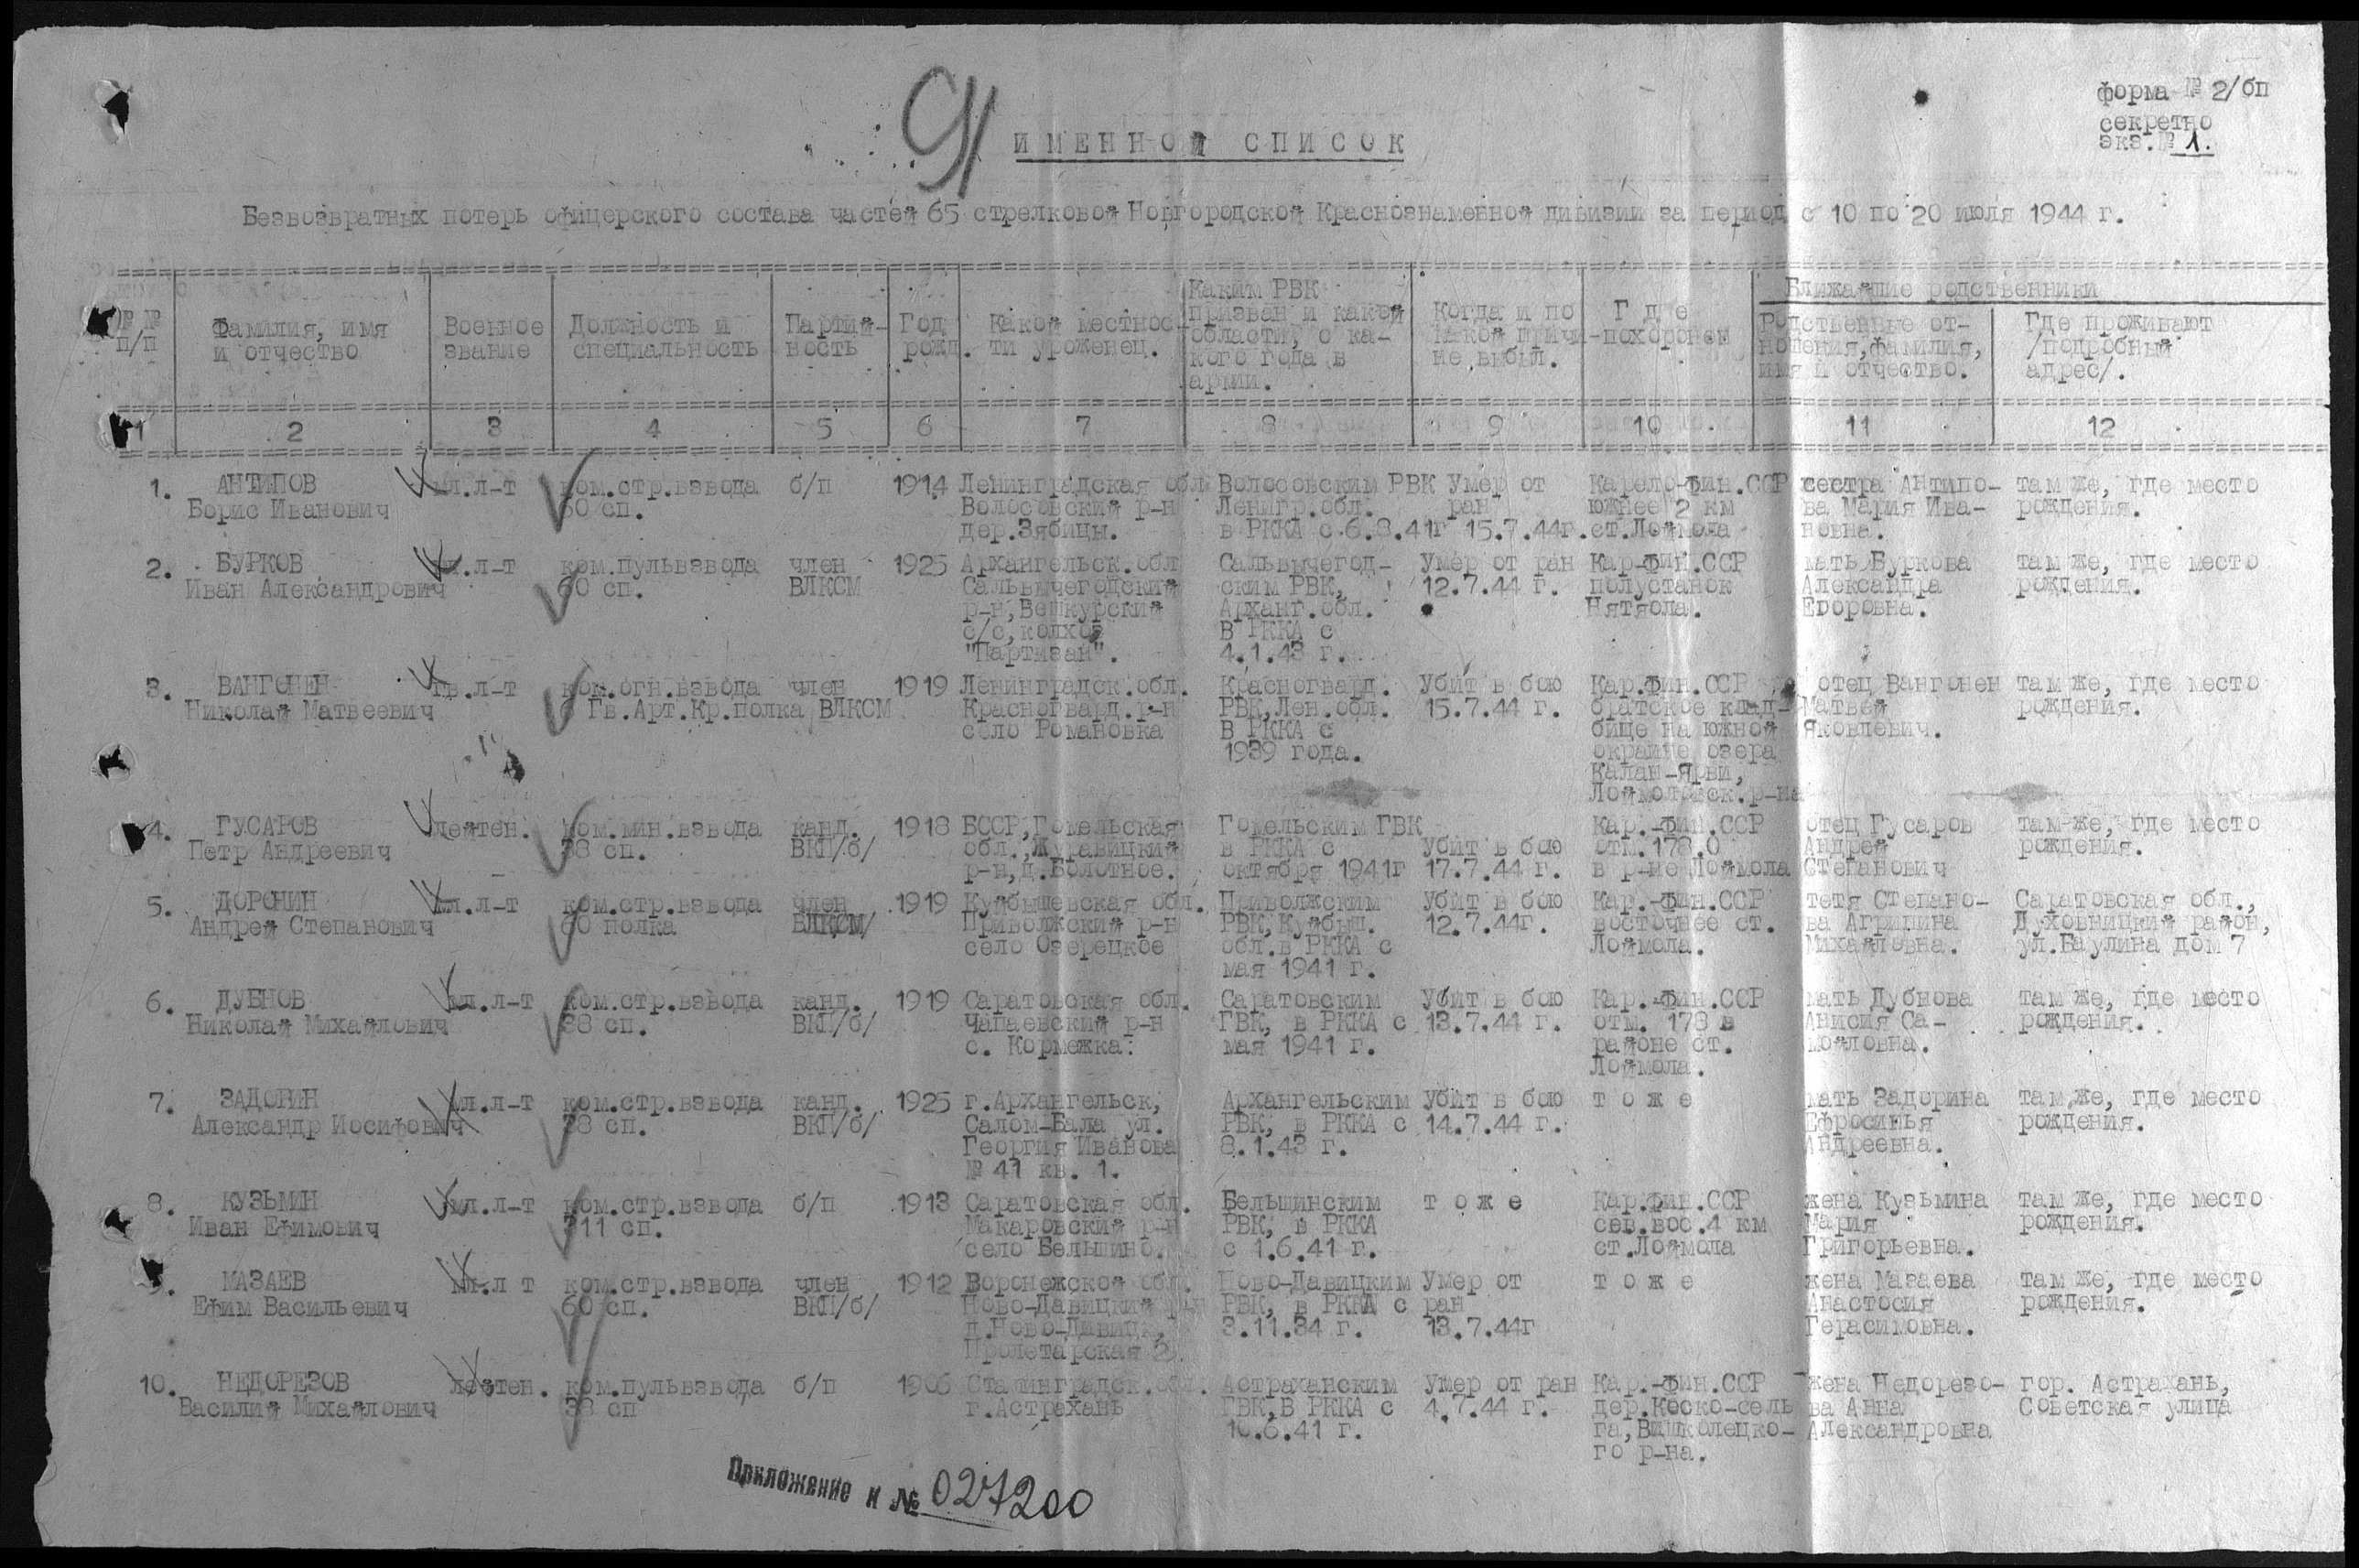 91
форма № 2/бп
секретно
экз.№ 1.
ИМЕННОЙ СПИСОК
Безвозвратных потерь офицерского состава частей 65 стрелковой Новгородской Краснознаменной дивизии за период с 10 по 20 июля 1944 г.
№№ п/п
Фамилия, имя и отчество
Военное звание
Должность и специальность
Партий-ность
Год рожд.
Какой местнос-ти уроженец.
Каким РВК призван и какой области, с ка-кого года в армии.
Когда и по какой причи-не выбыл.
Г д е похоронен
Ближайшие родственники
Родственные от-ношения, фамилия, имя и отчество.
Где проживают /подробный адрес/.
1 2 3 4 5 6 7 8 9 10 11 12
1. АНТИПОВ мл.л-т ком.стр.взвода б/п 1914 Ленинградская обл Волосовским РВК Умер от Карело-Фин.ССР сестра Антипо- там же, где место
Борис Иванович 60 сп. Волосовский р-н Ленигр.обл. ран южнее 2 км ва Мария Ива- рождения.
дер.Зябицы. в РККА с 6.8.41г 15.7.44г. ст.Лоймола новна.
2. БУРКОВ мл.л-т ком.пульвзвода член 1925 Архангельск.обл Сальвычегод- Умер от ран Кар-Фин.ССР мать Буркова там же, где место
Иван Александрович 60 сп. ВЛКСМ Сальвычегодский ским РВК, 12.7.44 г. полустанок Александра рождения.
р-н, Вешкурский Арханг.обл. Нятяола. Егоровна.
с/с, колхоз В РККА с
"Партизан". 4.1.43 г.
3. ВАНГОНЕН гв.л-т ком.огн.взвода член 1919 Ленинградск.обл. Красногвард. Убит в бою Кар.Фин.ССР отец Вангонен там же, где место
Николай Матвеевич Гв.Арт.Кр.полка ВЛКСМ Красногвард.р-н РВК,Лен.обл. 15.7.44 г. братское клад- Матвей рождения.
село Романовка В РККА с бище на южной Яковлевич.
1939 года. окраине озера
Калан-Ярви,
Лоймоловск.р-на
4. ГУСАРОВ лейтен. ком.мин.взвода канд. 1918 БССР,Гомельская Гомельским ГВК Кар.-Фин.ССР отец Гусаров там-же, где место
Петр Андреевич 38 сп. ВКП/б/ обл.,Журавицкий в РККА с Убит в бою отм.178.0 Андрей рождения.
р-н,д.Болотное. октября 1941г 17.7.44 г. в р-не Лоймола Степанович
5. ДОРОНИН мл.л-т ком.стр.взвода член 1919 Куйбышевская обл. Приволжским Убит в бою Кар.-Фин.ССР тетя Степано- Саратовская обл.,
Андрей Степанович 60 полка ВЛКСМ/ Приволжский р-н РВК,Куйбыш. 12.7.44г. восточнее ст. ва Агрипина Духовницкий район,
село Озерецкое обл.в РККА с Лоймола. Михайловна. ул.Баулина дом 7
мая 1941 г.
6. ДУБНОВ мл.л-т ком.стр.взвода канд. 1919 Саратовская обл. Саратовским Убит в бою Кар.-Фин.ССР мать Дубнова там же, где место
Николай Михайлович 38 сп. ВКП/б/ Чапаевский р-н ГВК, в РККА с 13.7.44 г. отм. 178 в Анисия Са- рождения.
с. Кормежка. мая 1941 г. районе ст. мойловна.
Лоймола.
7. ЗАДОРИН мл.л-т ком.стр.взвода канд. 1925 г.Архангельск, Архангельским Убит в бою т о ж е мать Задорина там же, где место
Александр Иосифович 38 сп. ВКП/б/ Салом-Бала ул. РВК, в РККА с 14.7.44 г. Ефросинья рождения.
Георгия Иванова 8.1.43 г. Андреевна.
№ 41 кв. 1.
8. КУЗЬМИН мл.л-т ком.стр.взвода б/п 1913 Саратовская обл. Бельщинским т о ж е Кар.Фин.ССР жена Кузьмина там же, где место
Иван Ефимович 311 сп. Макаровский р-н РВК, в РККА сев.вос.4 км Мария рождения.
село Бельщино. с 1.6.41 г. ст.Лоймола Григорьевна.
9. МАЗАЕВ мл.л т ком.стр.взвода член 1912 Воронежской обл. Ново-Давицким Умер от т о ж е жена Мазаева там же, где место
Ефим Васильевич 60 сп. ВКП/б/ Ново-Давицкий р-н РВК, в РККА с ран Анастосия рождения.
д.Ново-Давицк, 3.11.34 г. 13.7.44г Герасимовна.
Пролетарская 2.
10. НЕДОРЕЗОВ лейтен. ком.пульвзвода б/п 1906 Сталинградск.обл. Астраханским Умер от ран Кар.-Фин.ССР жена Недорезо- гор. Астрахань,
Василий Михайлович 38 сп г.Астрахань ГВК,В РККА с 4.7.44 г. дер.Коско-сель ва Анна Советская улица
10.6.41 г. га,Вишколецко- Александровна
го р-на.
Приложение к № 027200